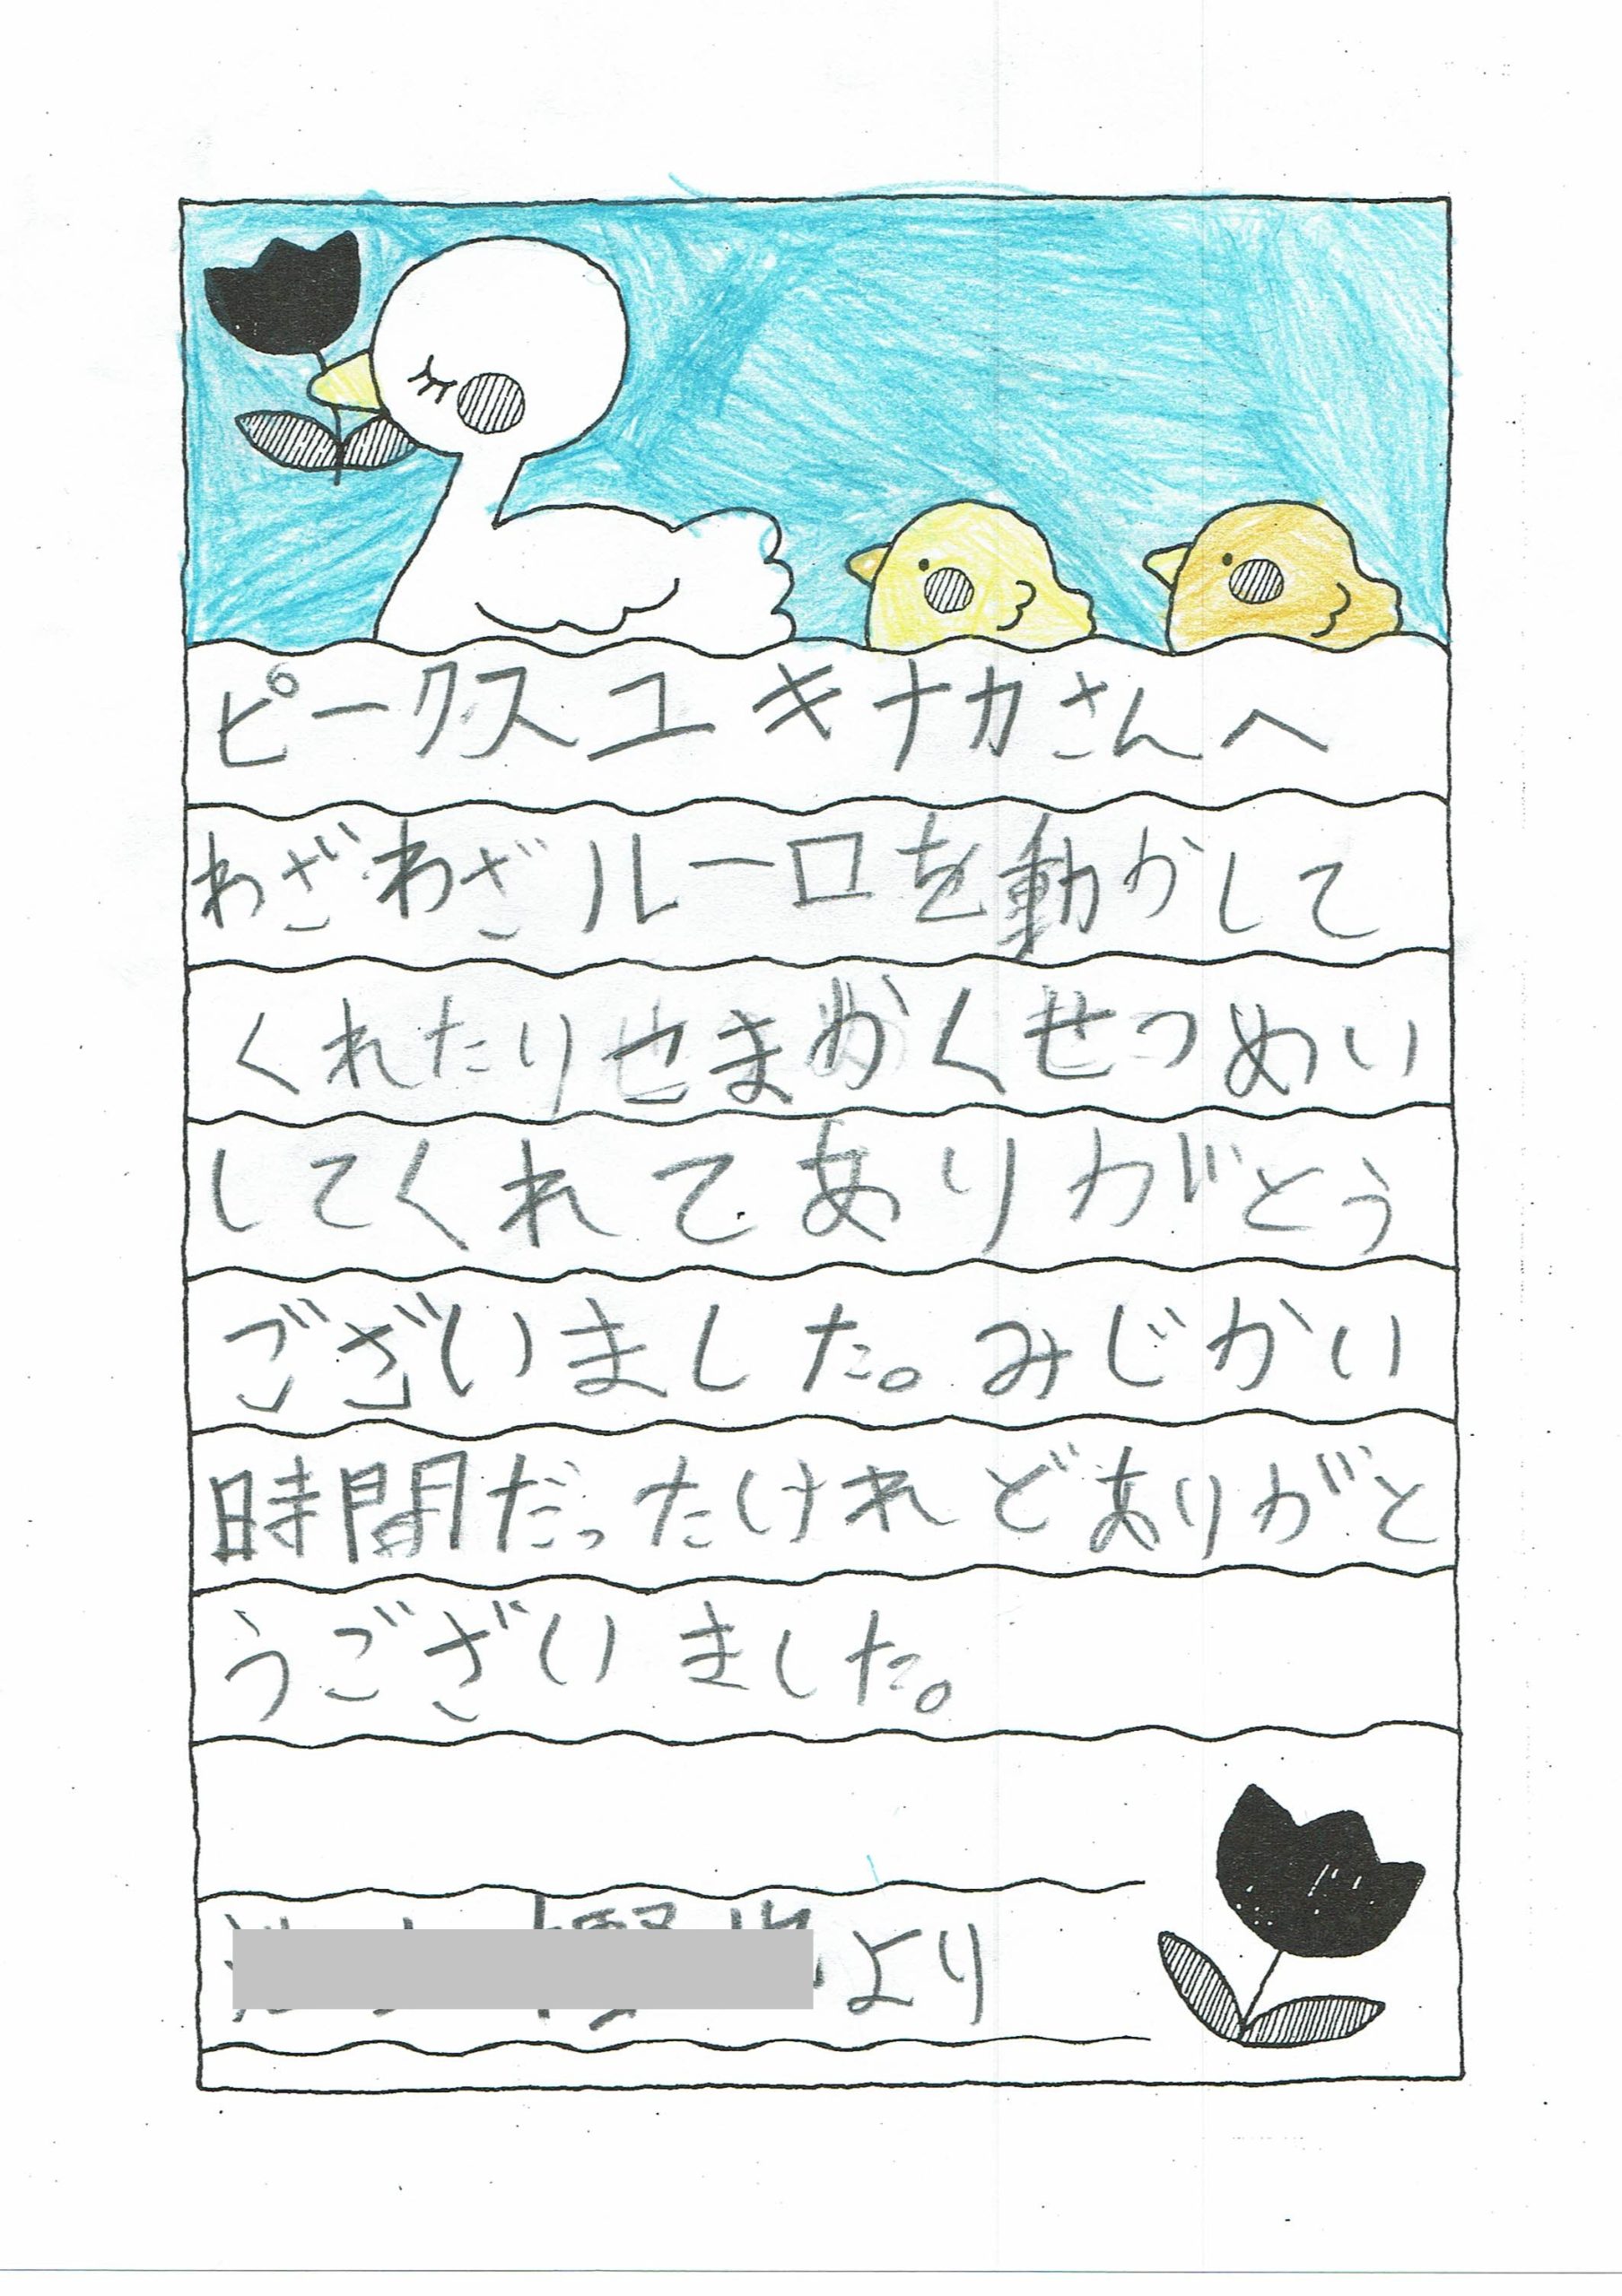 ピークスユキナカさんへ
わざわざルーロを動かして
くれたりせまかくせつめい
してくれてありがとう
ございました。みじかい
時間だったけれどありがと
うございました。
より